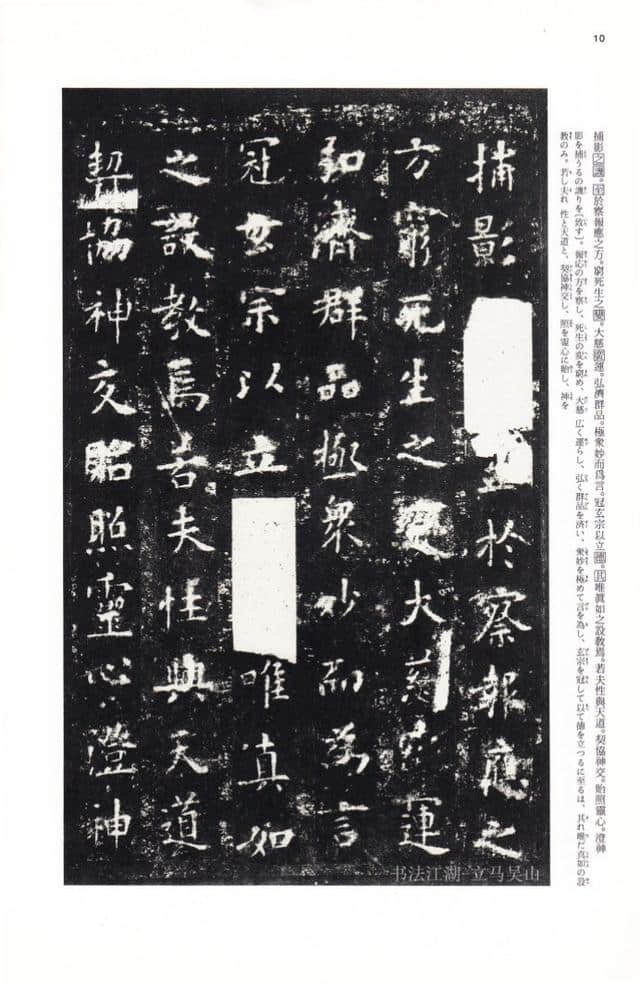 10
捕影之譏。至於察報應之方。窮死生之變。大慈廣運。弘濟群品。極衆妙而爲言。冠玄宗以立德。其唯眞如之設教焉。若夫性與天道。契協神交。貽照靈心。澄神
影を捕うるの譏りを〔致す〕。報応の方を察し、死生の変を窮め、大慈 広く運らし、弘く群品を済い、衆妙を極めて言を為し、玄宗を冠して以て徳を立つるに至るは、其れ唯だ真如の設
教のみ。若し夫れ 性と天道と、契協神交し、照を靈心に貽し、神を
捕影 至於察報應之
方窮死生之變大慈廣運
弘濟群品極衆妙而爲言
冠玄宗以立 唯真如
之設教焉若夫性與天道
契協神交貽照靈心澄神
书法江湖-立马吴山